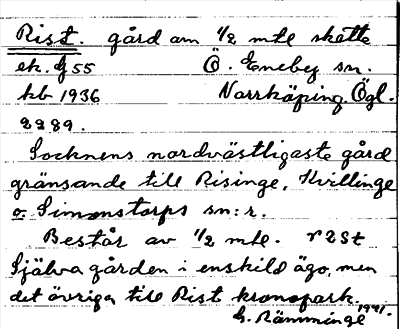 Rist. gård om 1/2 mtl skatte
ek. G 55 Ö. Eneby sn.
hb 1936 Norrköping. Ögl.
2289.
Socknens nordvästligaste gård
gränsande till Risinge, Kvillinge
o. Simonstorps sn:r.
Består av 1/2 mtl. r 2 St
Själva gården i enskild ägo, men
det övriga till Rist kronopark.
G. Rämminge 1941.